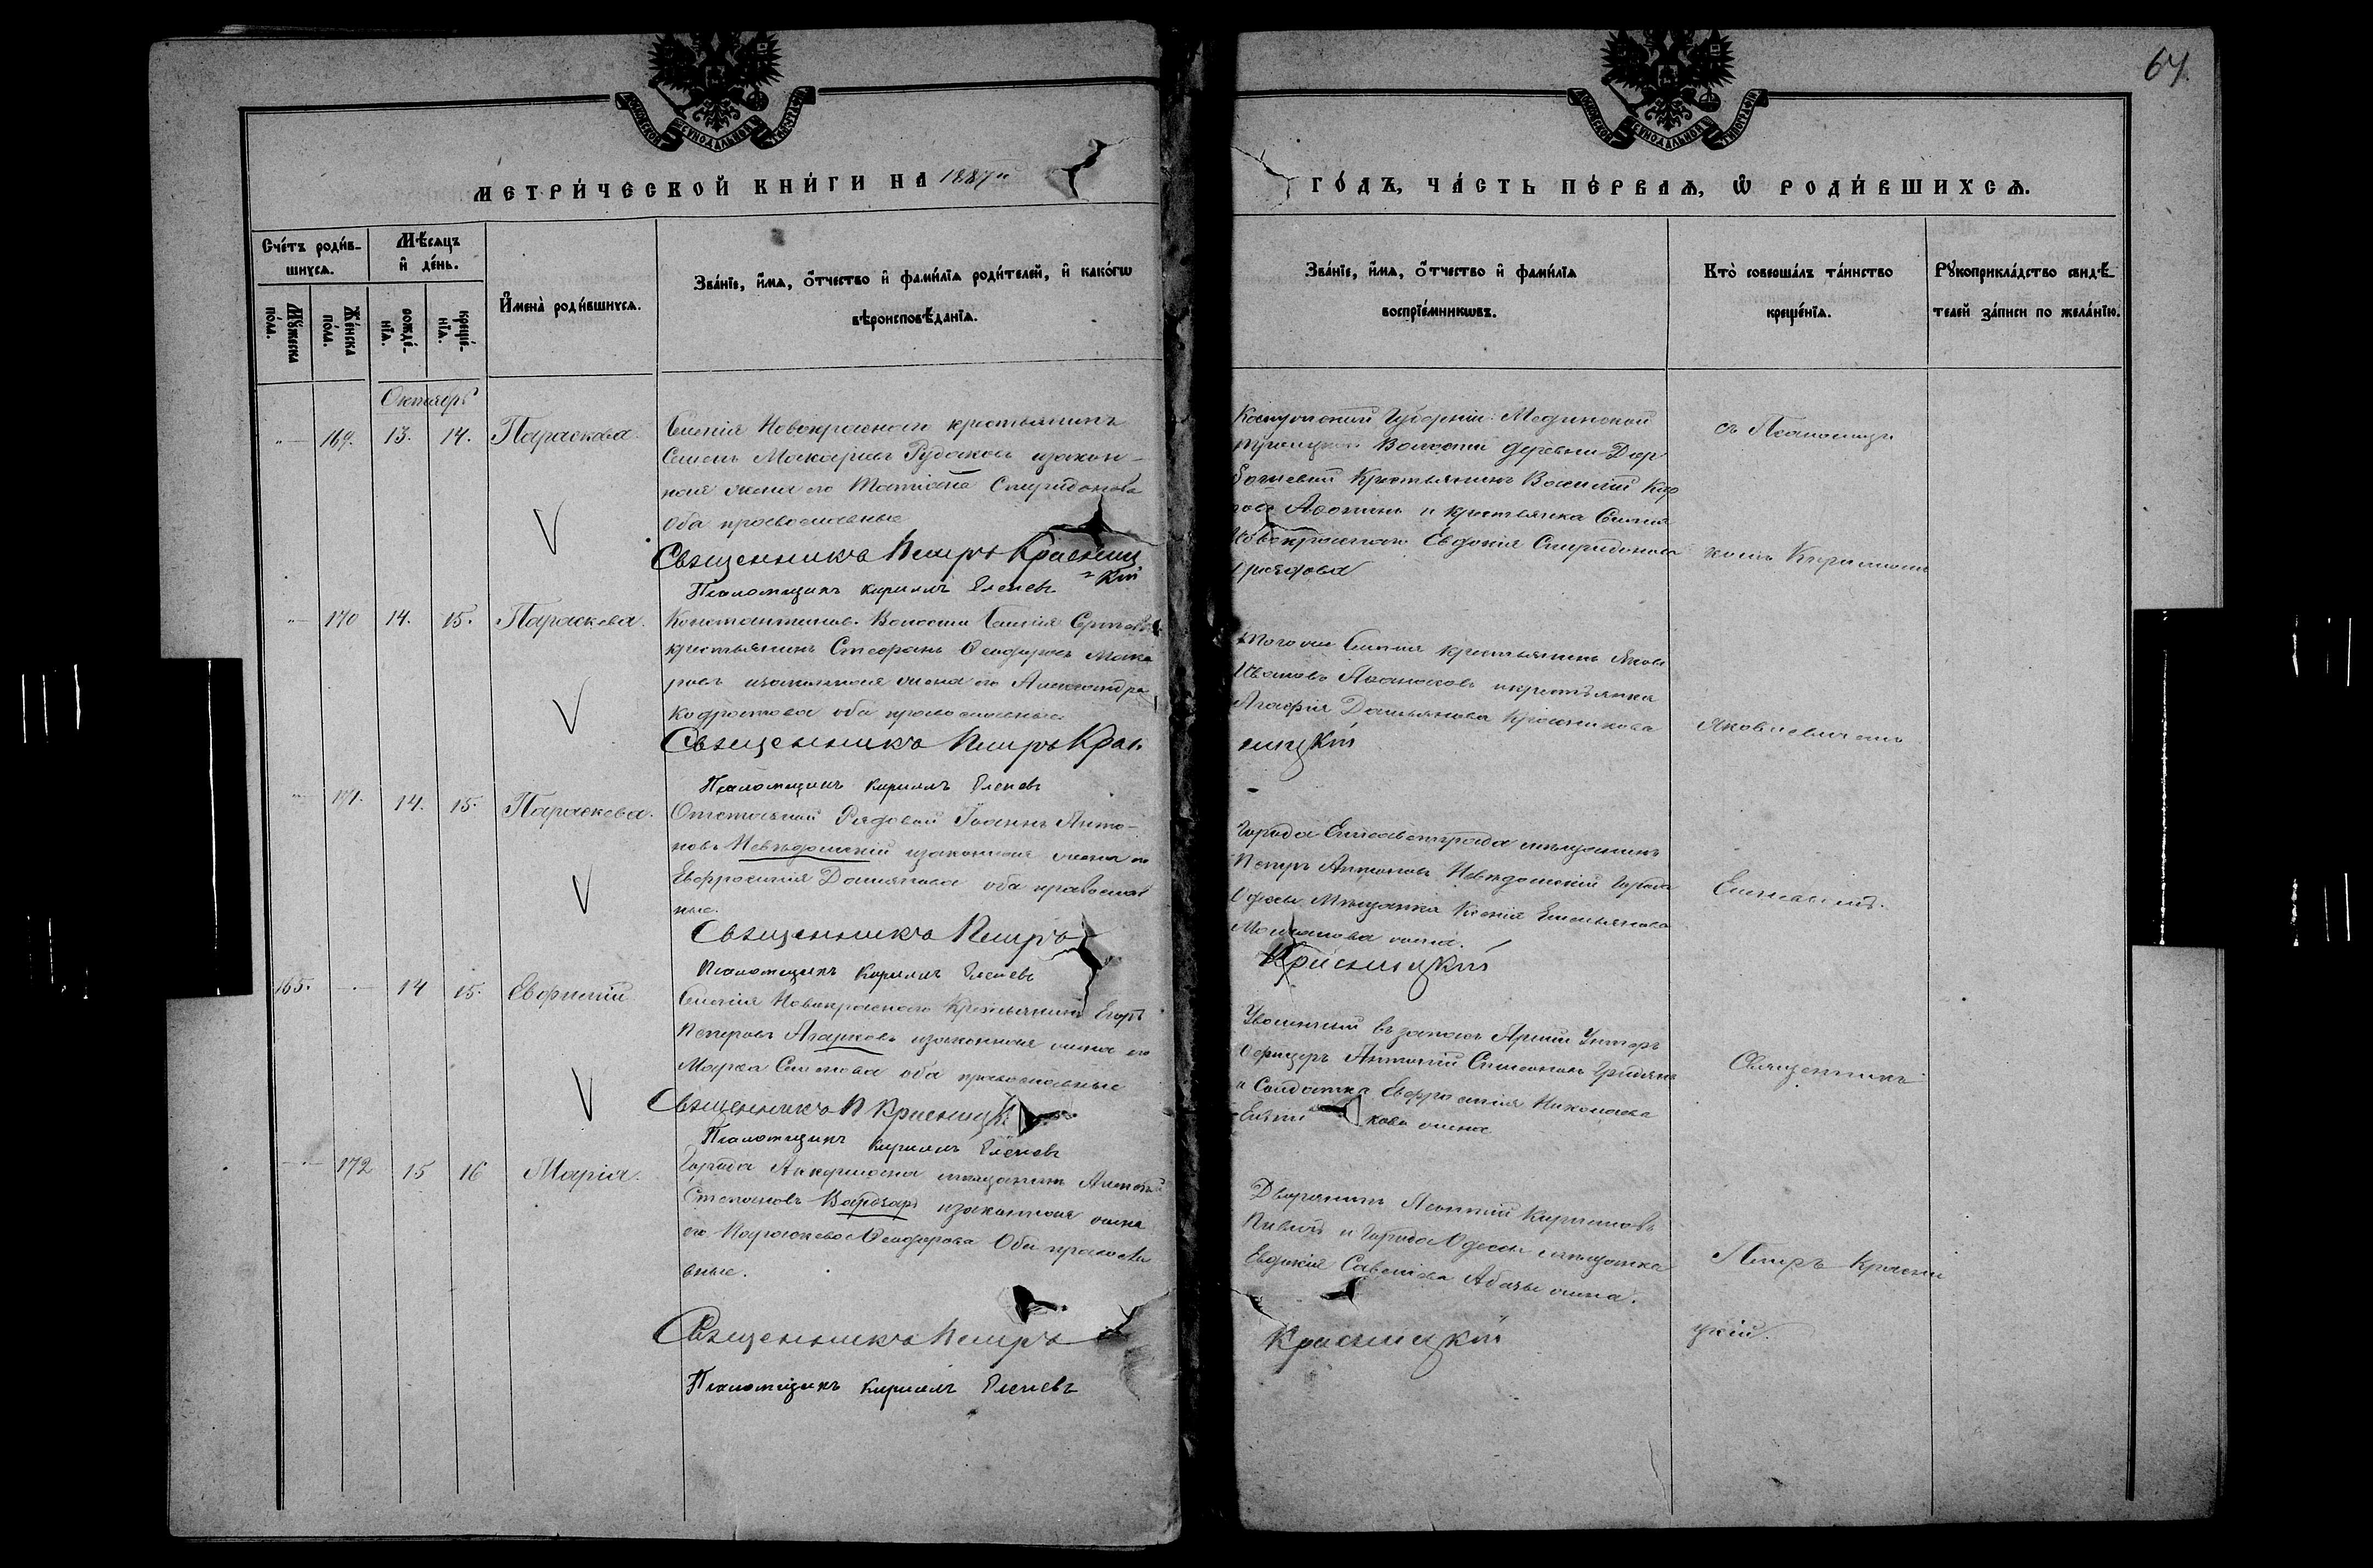 64
МЕТРИ́ЧЕСКОЙ КНИ́ГИ НА 1887й
ГО́ДЪ, ЧА́СТЬ ПЕ́РВАЯ, Ѡ РОДИ́ВШИХСЯ.
Сче́тъ роди́в-
шихся.
Мꙋ́жеска по́ла.
Же́нска по́ла.
Мѣ́сяцъ
и҆ де́нь.
рожде́-
нїя.
креще́-
нїя.
И҆мена̀ роди́вшихся.
Зва́нїе, и҆́мя, ѻ҆́тчество и҆ фами́лїя роди́телей, и҆ како́гѡ
вѣроисповѣ́данїя.
Зва́нїе, и҆́мя, ѻ҆́тчество и҆ фами́лїя
воспрїе́мникѡвъ.
Кто̀ соверша́лъ та́инство
креще́нїя.
Рꙋкоприкла́дство свидѣ́-
телей за́писи по жела́нїю.
Октябрь
169. 13. 14. Параскева
Селенія Новокраснаго крестьянинъ
Семенъ Макаріевъ Рудаковъ изакон-
ная жена его Татіана Спиридонова
оба православные
Священникъ Петръ Красниц
=кій
Псаломщикъ Кириллъ Еленевъ
Губерніи Медынской
Троицкой Волости деревни
Крестьянинъ Василій
Афонинъ и крестьянка Селенія
Новокраснаго Евдокія Спиридонова
съ Псаломщи
комъ Кирилломъ
170 14. 15. Параскева.
Константинов. Волости Селенія
крестьянинъ Стефанъ Феодоровъ Мака
ровъ изаконная жена его Александра
Кодратова оба православные
Священникъ Петръ Крас.
Псаломщикъ Кириллъ Еленевъ
тогоже Селенія крестьянинъ Яковъ
Ивановъ Афанасовъ икрестьянка
Агафія Дамьянова Красникова
ницкій
Яковлевичемъ
171. 14. 15. Параскева.
Отставной Рядовой Іоаннъ Анто-
новъ Невядомскій изаконная жена его
Евфросинія Дамianова оба православ
ные.
Священникъ Петръ
Псаломщикъ Кириллъ Еленевъ
Города Елисаветграда мѣщанинъ
Петръ Антоновъ Невядомскій Города
Одессы Мѣщанка Ксенія Емельянова
жена.
Красницкій
Еленевымъ.
165. 14 15. Евфимій
Селенія Новокраснаго Крестьянинъ Егоръ
Петровъ Агарковъ изаконная жена его
Марфа Семенова оба православные
Священникъ П Красницкі
Псаломщикъ Кириллъ Еленевъ
Уволенный въ запасъ Арміи Унтеръ
Офицеръ Антоній Симеоновъ
и Солдатка Евфросинія Николаева
кова жена
Священникъ
172 15 16 Марія.
Города Аккермана мѣщанинъ Алексѣй
Степановъ Варзарь изаконная жена
его Параскева Феодорова Оба правосла
вные.
Священникъ Петръ
Псаломщикъ Кириллъ Еленевъ
Дворянинъ Леонтій
и Города Одессы мѣщанка
Евдокія Савелiева жена.
Красницкій
Петръ Красни
цкій.